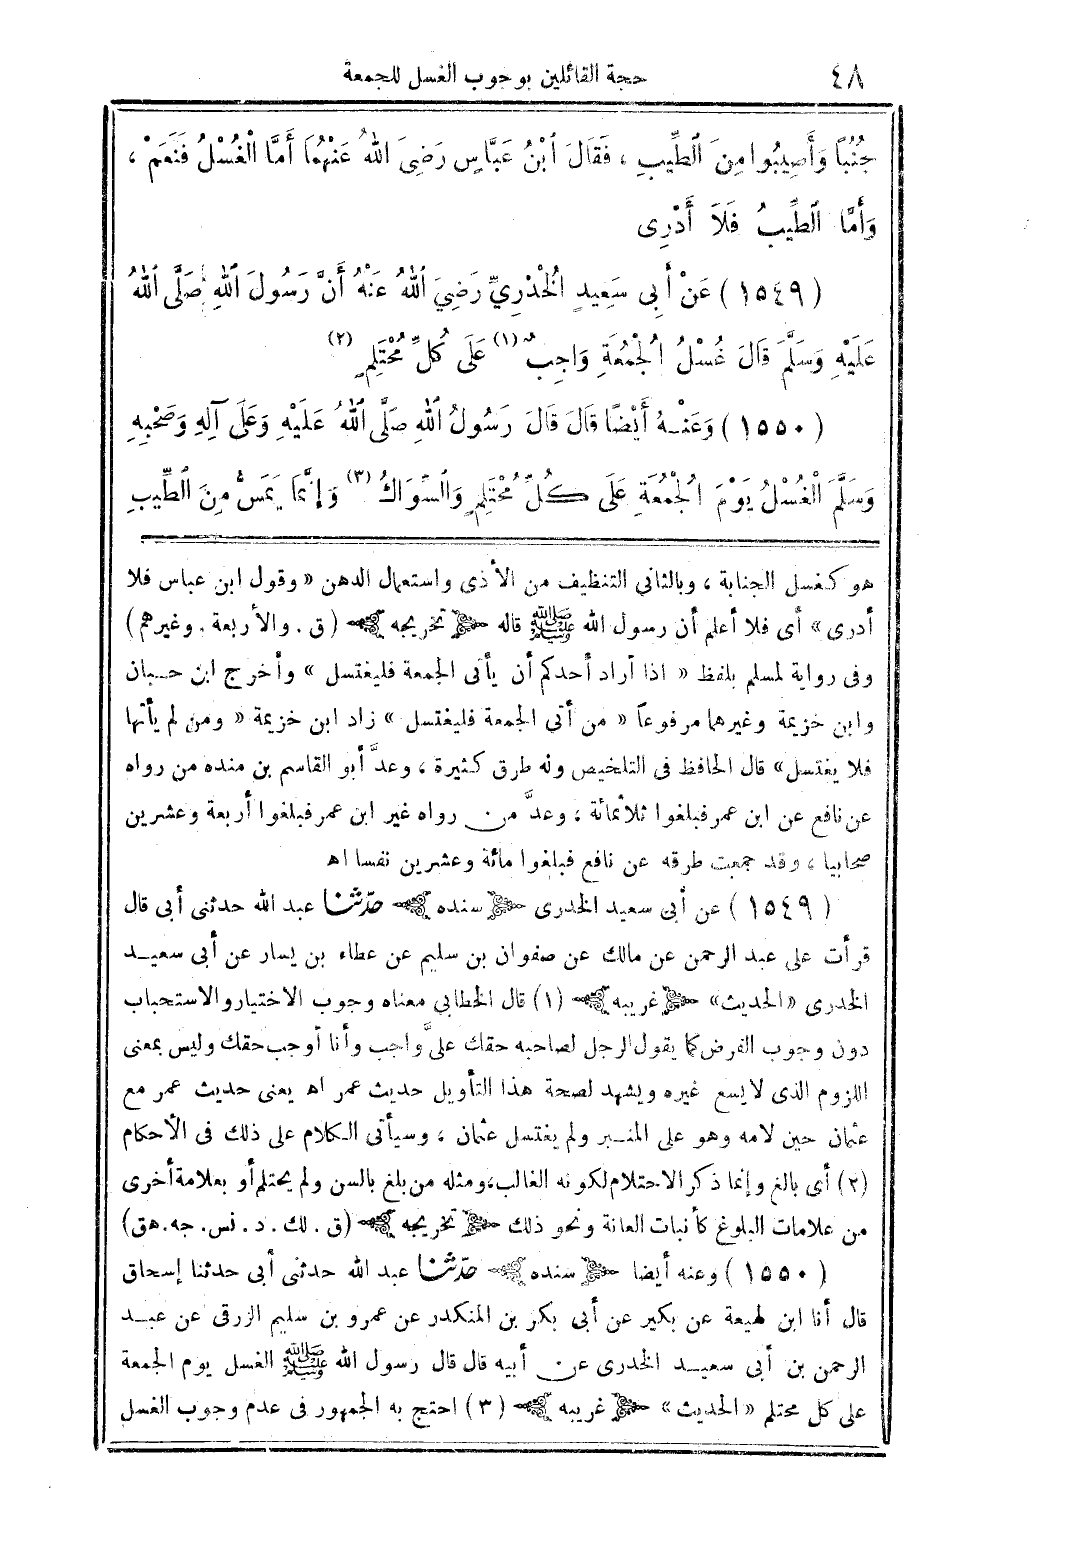 ٤٨ حجة القائلين بوجوب الغسل للجمعة
جُنُبًا وَأَصِيبُوا مِنَ الطِّيبِ ، فَقَالَ ابْنُ عَبَّاسٍ رَضِىَ اللهُ عَنْهُمَا أَمَّا الْغُسْلُ فَنَعَمْ ،
وَأَمَّا الطِّيبُ فَلَا أَدْرِى
(١٥٤٩) عَنْ أَبِى سَعِيدٍ الْخُدْرِيِّ رَضِيَ اللهُ عَنْهُ أَنَّ رَسُولَ اللهِ صَلَّى اللهُ
عَلَيْهِ وَسَلَّمَ قَالَ غُسْلُ الْجُمُعَةِ وَاجِبٌ (١) عَلَى كُلِّ مُحْتَلِمٍ (٢)
(١٥٥٠) وَعَنْهُ أَيْضًا قَالَ قَالَ رَسُولُ اللهِ صَلَّى اللهُ عَلَيْهِ وَعَلَى آلِهِ وَصَحْبِهِ
وَسَلَّمَ الْغُسْلُ يَوْمَ الْجُمُعَةِ عَلَى كُلِّ مُحْتَلِمٍ وَالسِّوَاكُ (٣) وَإِنَّمَا يَمَسُّ مِنَ الطِّيبِ
هو كغسل الجنابة ، وبالثانى التنظيف من الأذى واستعمال الدهن « وقول ابن عباس فلا
أدرى » أى فلا أعلم أن رسول الله ﷺ قاله ﴿ تخريجه ﴾ (ق . والأربعة . وغيرهم)
وفى رواية لمسلم بلفظ « اذا أراد أحدكم أن يأتى الجمعة فليغتسل » وأخرج ابن حبان
وابن خزيمة وغيرهما مرفوعاً « من أتى الجمعة فليغتسل » زاد ابن خزيمة « ومن لم يأتها
فلا يغتسل » قال الحافظ فى التلخيص وله طرق كثيرة ، وعدَّ أبو القاسم بن منده من رواه
عن نافع عن ابن عمر فبلغوا ثلاثمائة ، وعدَّ من رواه غير ابن عمر فبلغوا أربعة وعشرين
صحابيا ، وقد جمعت طرقه عن نافع فبلغوا مائة وعشرين نفسا اه
(١٥٤٩) عن أبى سعيد الخدرى ﴿ سنده ﴾ حدّثنا عبد الله حدثنى أبى قال
قرأت على عبد الرحمن عن مالك عن صفوان بن سليم عن عطاء بن يسار عن أبى سعيد
الخدرى « الحديث » ﴿ غريبه ﴾ (١) قال الخطابي معناه وجوب الاختيار والاستحباب
دون وجوب الفرض كما يقول الرجل لصاحبه حقك علىَّ واجب وأنا أوجب حقك وليس بمعنى
اللزوم الذى لا يسع غيره ويشهد لصحة هذا التأويل حديث عمر اه يعنى حديث عمر مع
عثمان حين لامه وهو على المنبر ولم يغتسل عثمان ، وسيأتى الكلام على ذلك فى الأحكام
(٢) أى بالغ وإنما ذكر الاحتلام لكونه الغالب، ومثله من بلغ بالسن ولم يحتلم أو بعلامة أخرى
من علامات البلوغ كأنبات العانة ونحو ذلك ﴿ تخريجه ﴾ (ق . لك . د . نس . جه . هق)
(١٥٥٠) وعنه أيضا ﴿ سنده ﴾ حدّثنا عبد الله حدثنى أبى حدثنا إسحاق
قال أنا ابن لهيعة عن بكير عن أبى بكر بن المنكدر عن عمرو بن سليم الزرقى عن عبد
الرحمن بن أبى سعيد الخدرى عن أبيه قال قال رسول الله ﷺ الغسل يوم الجمعة
على كل محتلم « الحديث » ﴿ غريبه ﴾ (٣) احتج به الجمهور فى عدم وجوب الغسل